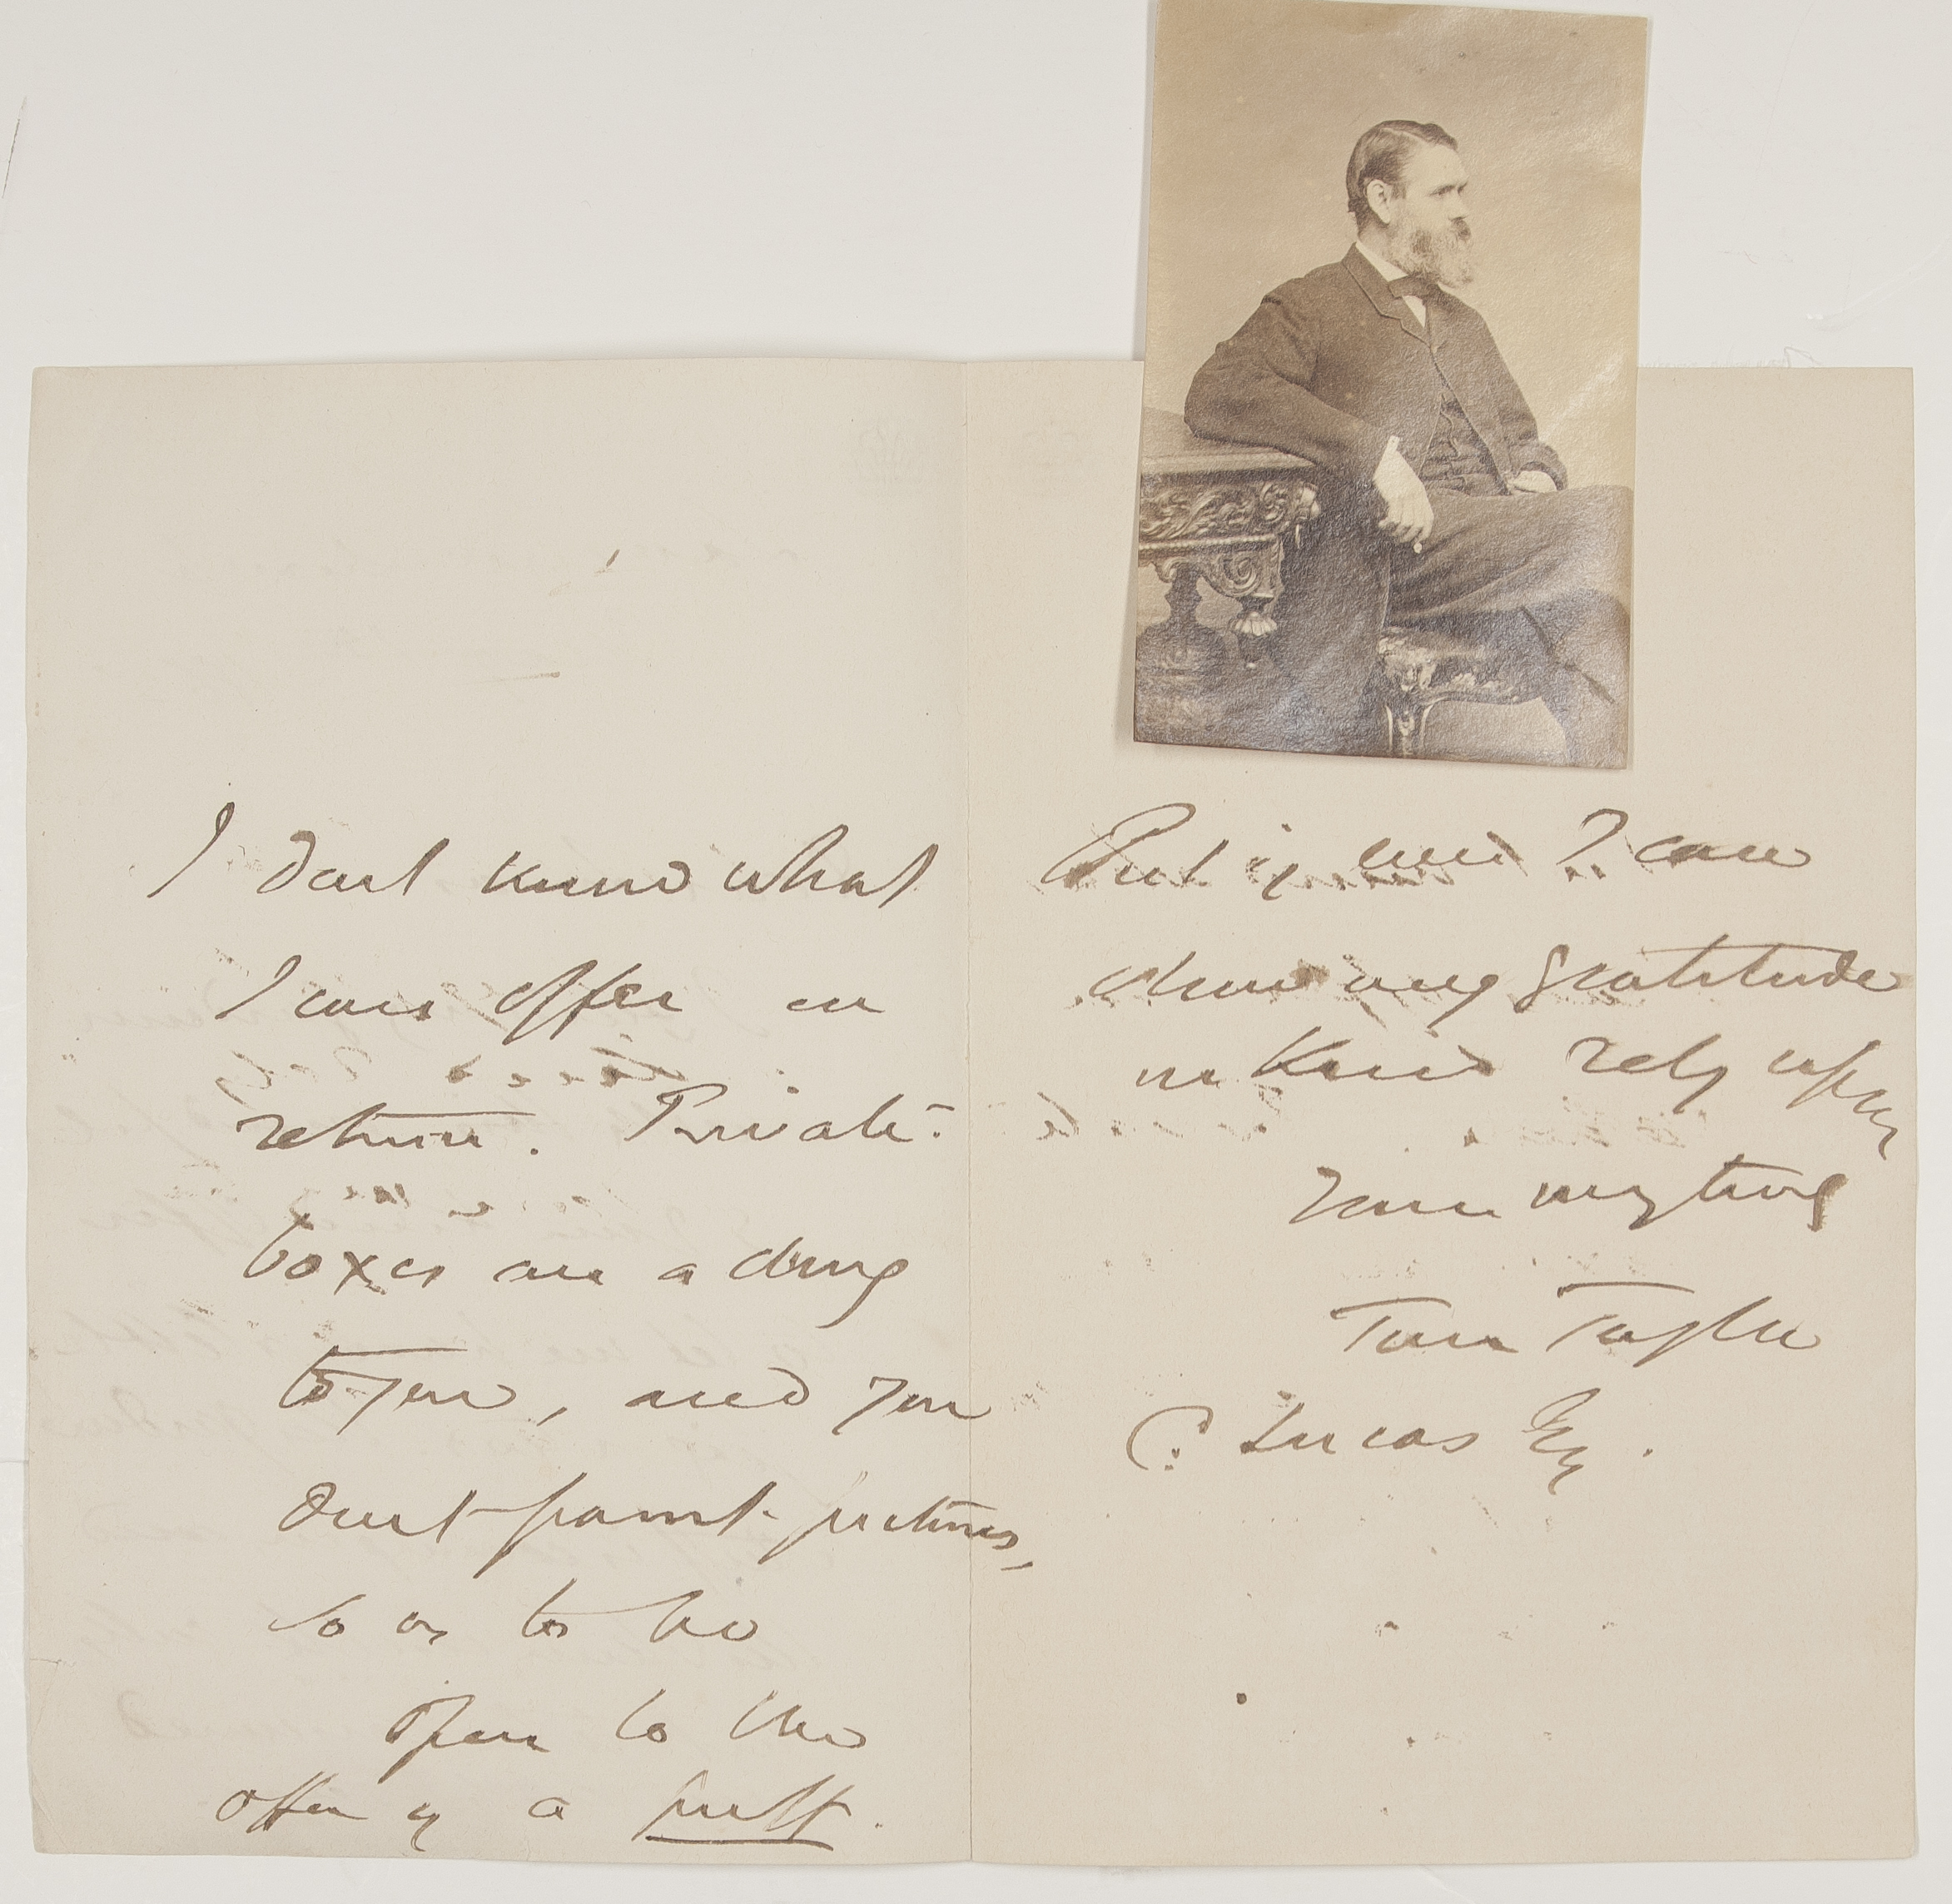 I dont know what
I can offer in
return. Private-
boxes are a drug
to you, and you
dont paint pictures,
so as to be
open to the
offer of a puff.
But if ever I can
show my gratitude
in kind rely upon
Yours very truly
Tom Taylor
C. Lucas Esq.